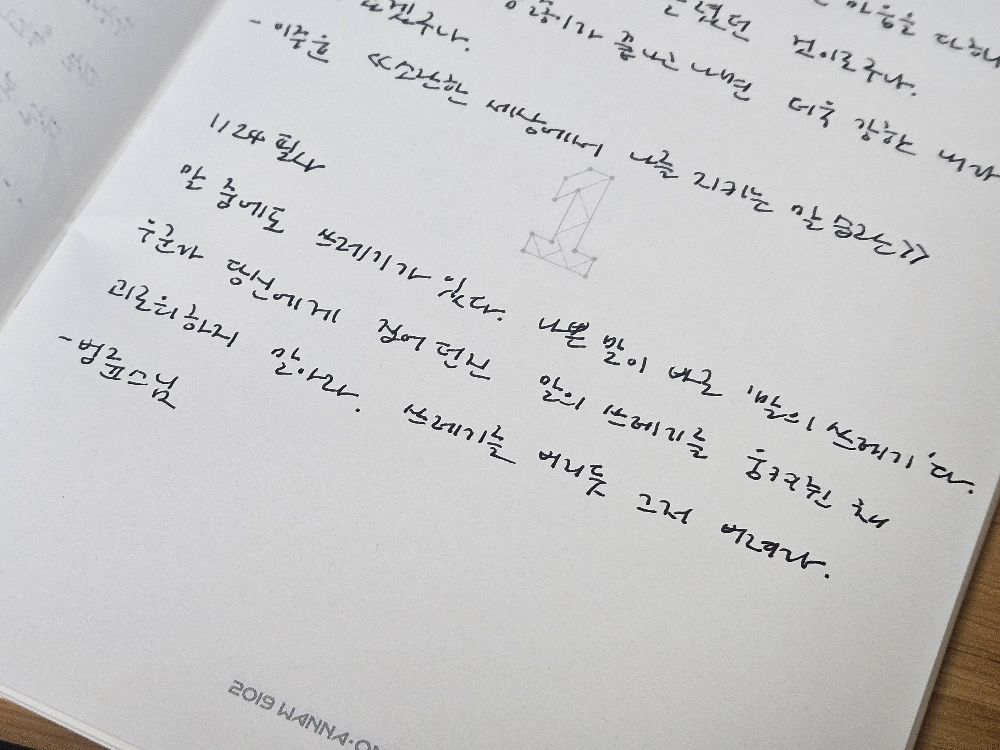 마음을 다하
겠구나.
끝나고 나면 더욱 강한 내가
- 이주윤 《소란한 세상에서 나를 지키는 말 습관》
1/24 필사
말 중에도 쓰레기가 있다. 나쁜 말이 바로 '말의 쓰레기'다.
누군가 당신에게 집어 던진 말의 쓰레기를 움켜쥔 채
괴로워하지 말아라. 쓰레기를 버리듯 그저 버려라.
- 법륜스님
2019 WANNA·ON